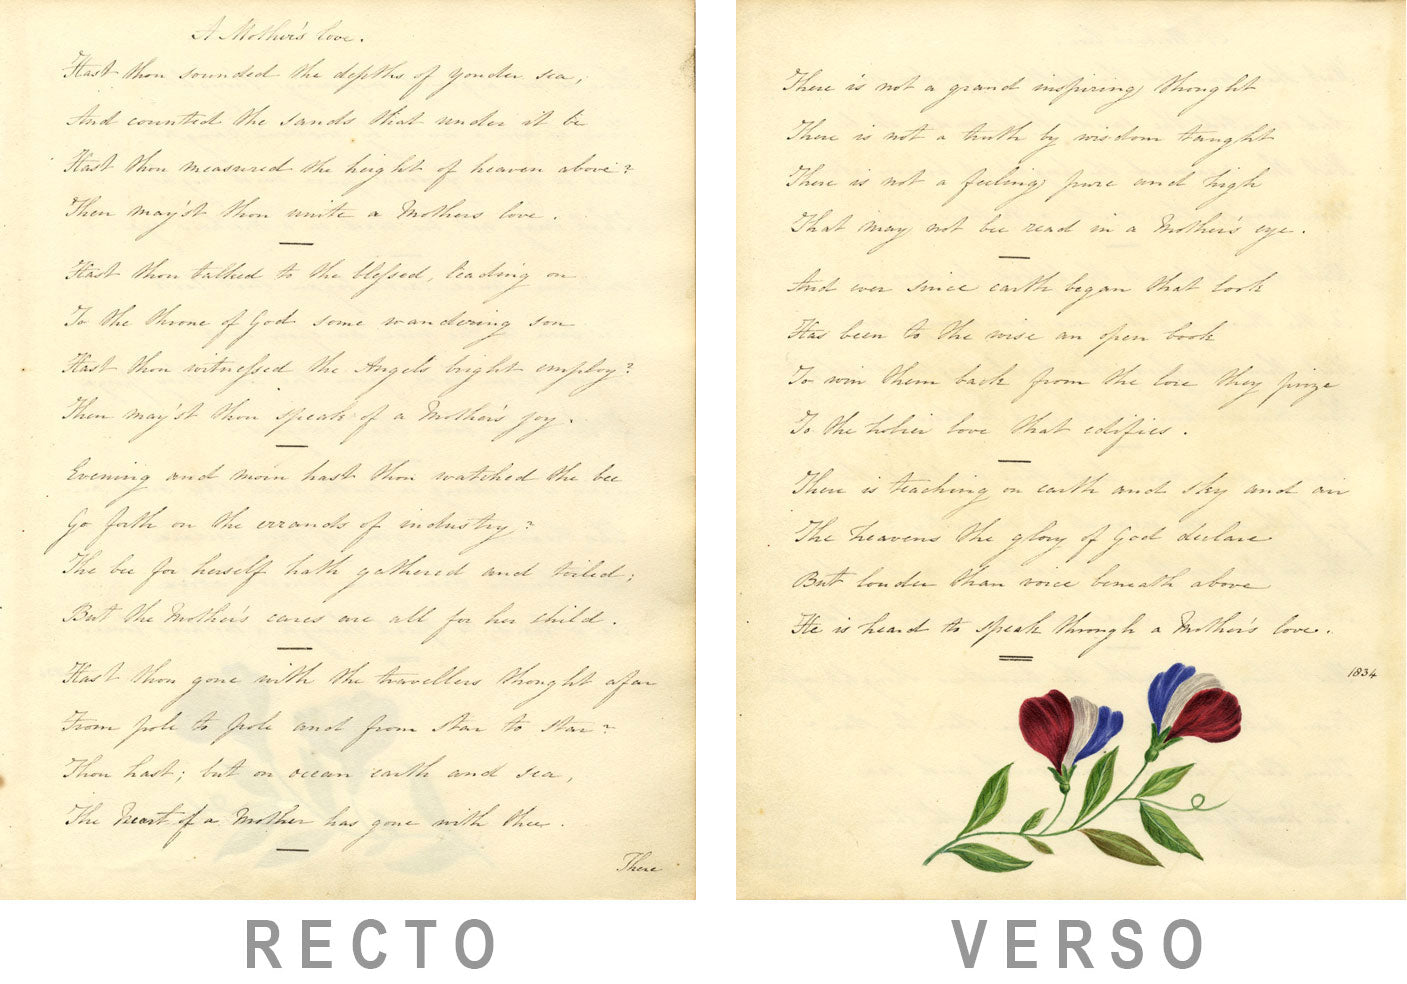 A Mother's love.
Hast thou sounded the depths of yonder sea,
And counted the sands that under it be
Hast thou measured the height of heaven above?
Then may'st thou unite a Mothers love.
Hast thou talked to the blessed, leading on
To the throne of God some wandering son
Hast thou witnessed the Angels bright employ?
Then may'st thou speak of a Mother's joy.
Evening and morn hast thou watched the bee
Go forth on the errands of industry?
The bee for herself hath gathered and toiled;
But the Mother's cares are all for her child.
Hast thou gone with the travellers thought afar
From pole to pole and from star to star?
Thou hast; but on ocean earth and sea,
The Heart of a Mother has gone with thee.
There
There is not a grand inspiring thought
There is not a truth by wisdom taught
There is not a feeling pure and high
That may not bee read in a Mother's eye.
And ever since earth began that look
Has been to the wise an open book
To win them back from the lore they prize
To the holier love that edifies.
There is teaching on earth and sky and air
The heavens the glory of God declare
But louder than voice beneath above
He is heard to speak through a Mother's love.
1834
RECTO
VERSO